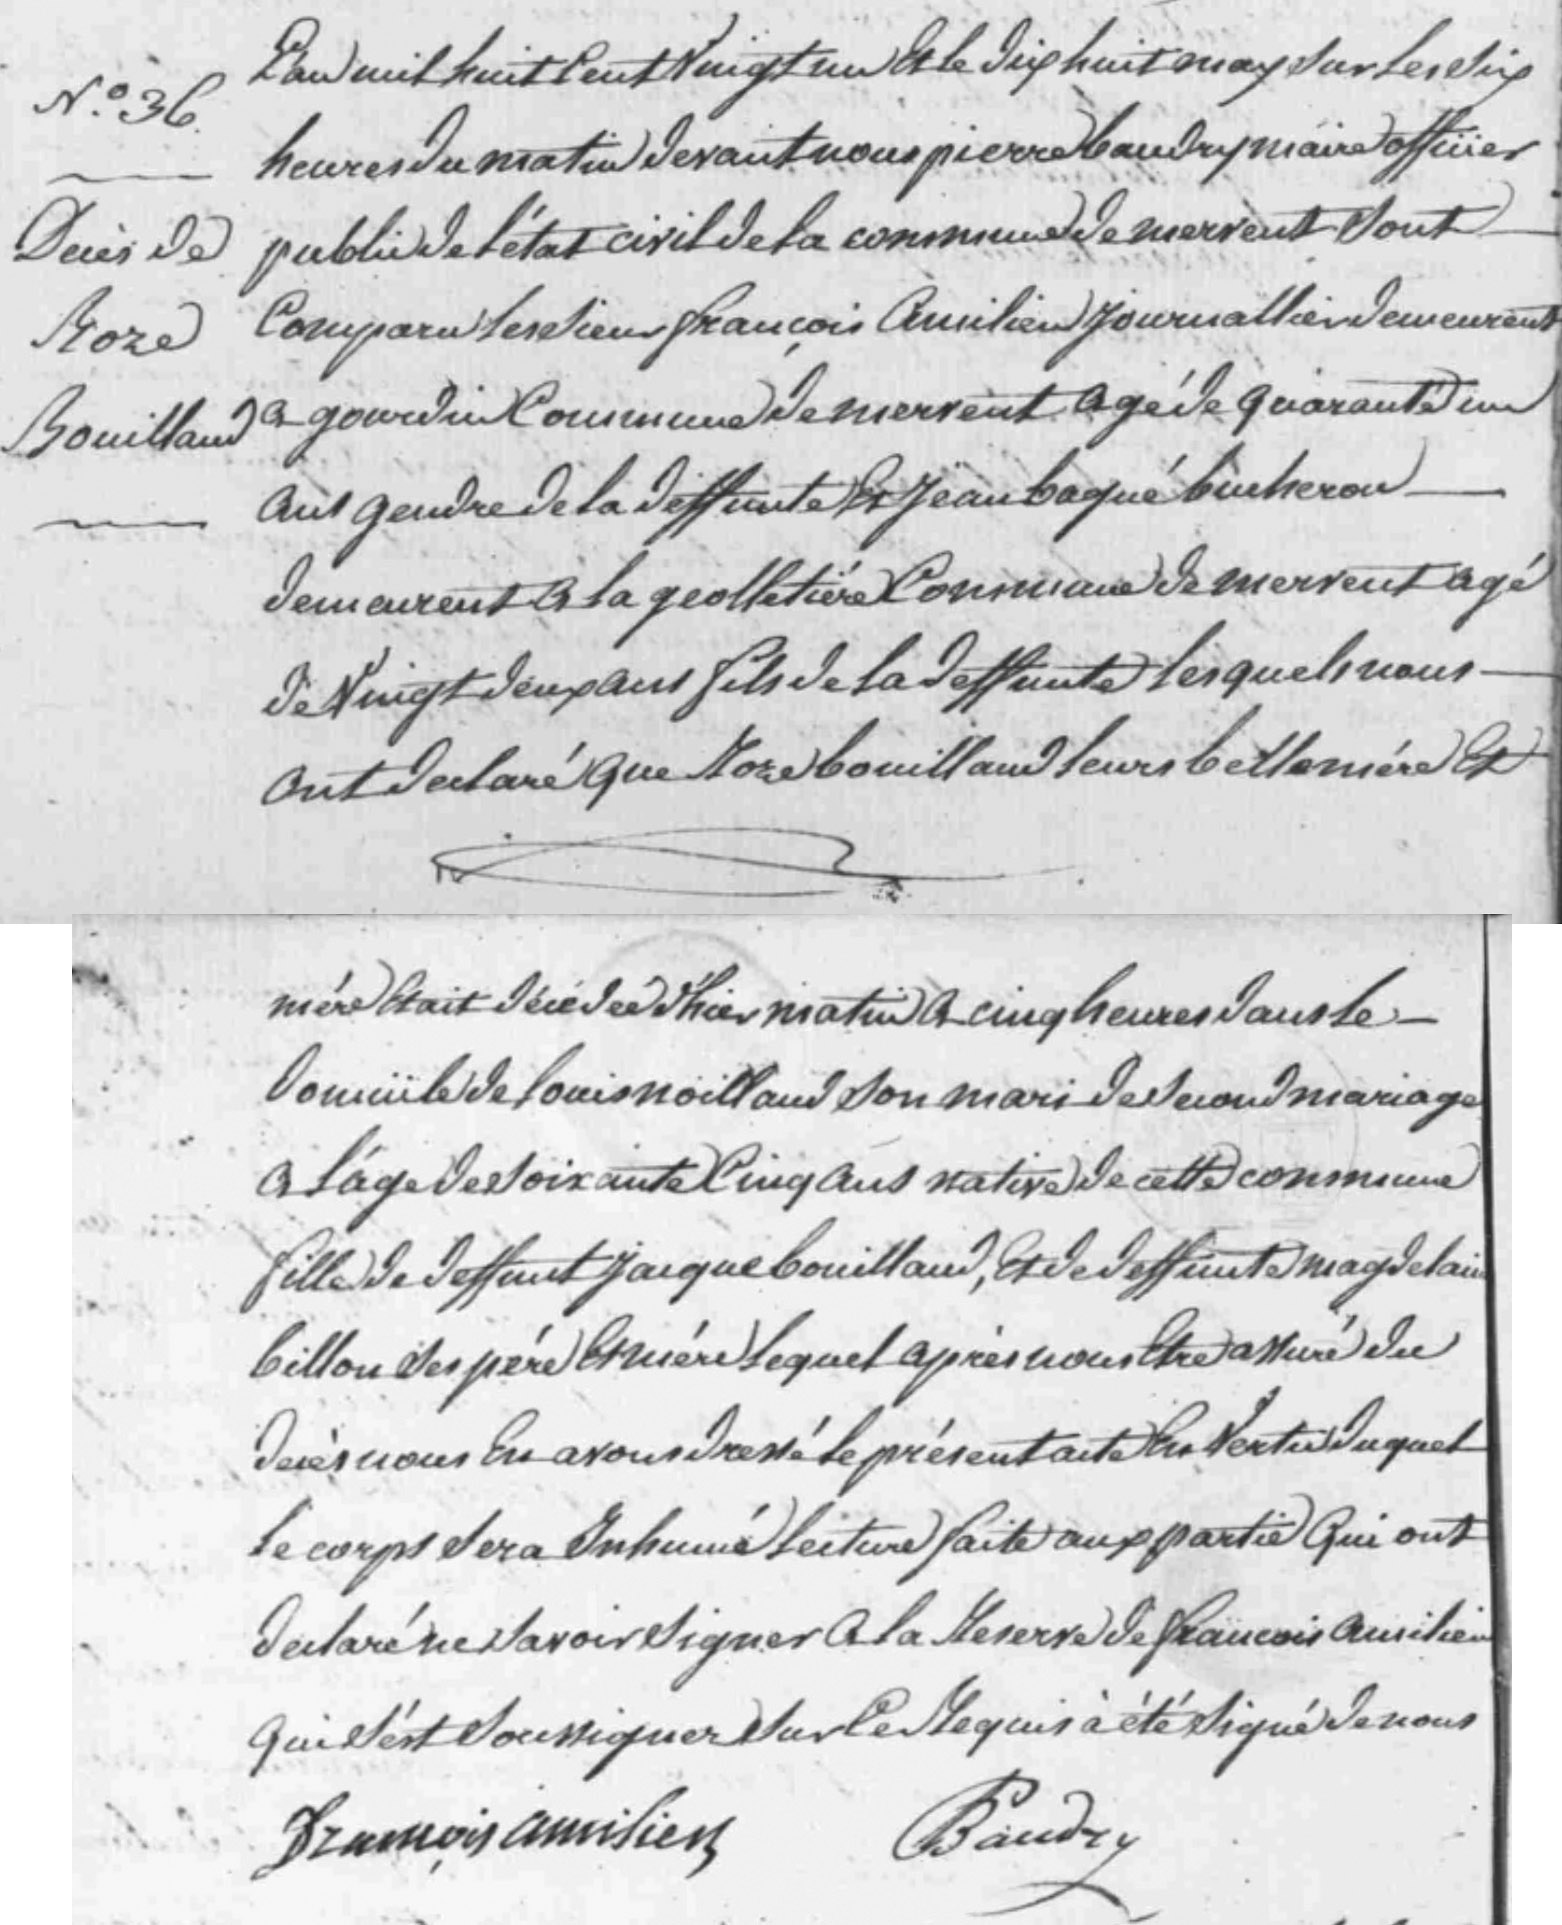 N.o 36.
Décès de
Roze
Bouillaud
L'an mil huit Cent Vuigt un Et le dix huit may sur les six
heures du matin devant nous pierre baudry maire officier
public de l'état civil de la commune de mervent sont
Comparu les sieur françois Amilien Journallier demeurent
a gourdin Commune de mervent agé de quarante un
ans gendre de la deffunte Et Jean baqué bucheron
demeurent a la geolletière Commune de mervent agé
de Vuigt deux ans fils de la deffunte lesquels nous
ont declaré que Roze bouillaud leurs belle mére Et
mére Etait décédéé d'hier matin a cinq heures dans le
domicile de louis noillaud son mari de second mariage
a l'áge de soixante Cinq ans native de cette commune
fille de deffunt Jacque bouillaud, Et de deffunte magdelaine
billon ses pére Et mére lequel aprés nous Etre assuré du
decés nous En avons dressé le présent acte En Vertu duquel
le corps sera Inhumé lecture faite aux partie qui ont
declaré ne savoir signer a la Reserve de françois amilien
qui s'ést soussigner sur Ce Requis à été signé de nous
François amilien Baudry